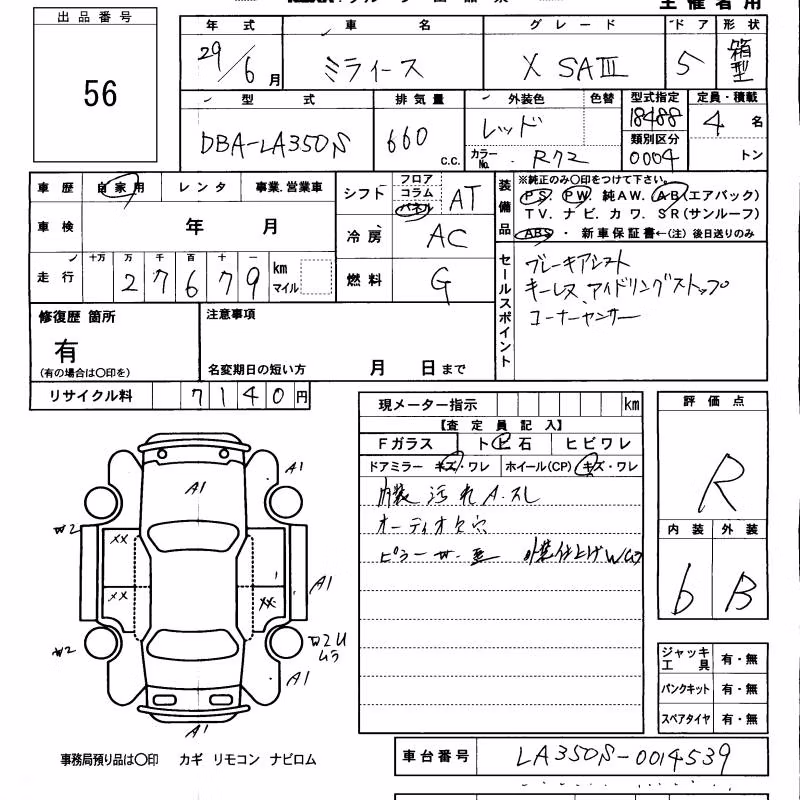 主催者用
出品番号
56
年式 車名 グレード ドア 形状
29/6月 ミライース X SAIII 5 箱型
型式 排気量 外装色 色替 型式指定 定員・積載
DBA-LA350S 660 c.c. レッド 18488 4名
カラーNo. R72 類別区分 0004 トン
車歴 自家用 レンタ 事業.営業車
シフト フロア コラム パネル AT
装備品 ※純正のみ〇印をつけて下さい。
PS. PW. 純AW. AB(エアバック)
TV. ナビ. カワ. SR(サンルーフ)
ABS・新車保証書←(注)後日送りのみ
車検 年 月
冷房 AC
走行 十万 万 千 百 十 一
27679 km マイル
燃料 G
セールスポイント
ブレーキアシスト
キーレス、アイドリングストップ
コーナーセンサー
修復歴 箇所
有
(有の場合は〇印を)
注意事項
名変期日の短い方 月 日まで
リサイクル料 7140円
現メーター指示 km
【査定員記入】
Fガラス ト ヒ 石 ヒビワレ
ドアミラー キズ・ワレ ホイール(CP) キズ・ワレ
内装 汚れ A.スレ
オーディオ欠穴
評価点
R
内装 外装
6 B
ジャッキ工具 有・無
パンクキット 有・無
スペアタイヤ 有・無
A1
A1
W2
XX
XX
A1
XX
W2
W2U
ムラ
A1
A1
事務局預り品は〇印 カギ リモコン ナビロム
車台番号 LA350S-0014539